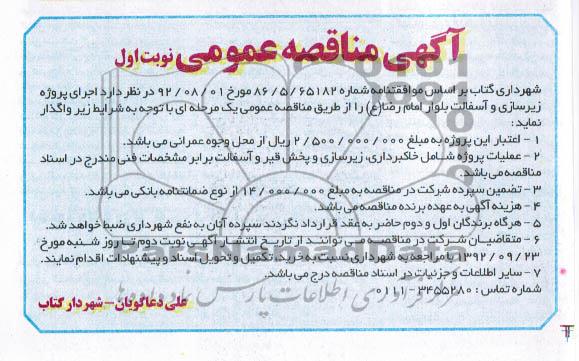 آگهی مناقصه عمومی نوبت اول
شهرداری گتاب بر اساس موافقتنامه شماره ۸۶/۵/۶۵۱۸۲ مورخ ۹۲/۰۸/۰۱ در نظر دارد اجرای پروژه
زیرسازی و آسفالت بلوار امام رضا(ع) را از طریق مناقصه عمومی یک مرحله ای با توجه به شرایط زیر واگذار
نماید:
۱- اعتبار این پروژه به مبلغ ۲/۵۰۰/۰۰۰/۰۰۰ ریال از محل وجوه عمرانی می باشد.
۲- عملیات پروژه شامل خاکبرداری، زیرسازی و پخش قیر و آسفالت برابر مشخصات فنی مندرج در اسناد
مناقصه می باشد.
۳- تضمین سپرده شرکت در مناقصه به مبلغ ۱۴/۰۰۰/۰۰۰ از نوع ضمانتنامه بانکی می باشد.
۴- هزینه آگهی به عهده برنده مناقصه می باشد.
۵- هرگاه برندگان اول و دوم حاضر به عقد قرارداد نگردند سپرده آنان به نفع شهرداری ضبط خواهد شد.
۶- متقاضیان شرکت در مناقصه می توانند از تاریخ انتشار آگهی نوبت دوم تا روز شنبه مورخ
۱۳۹۲/۰۹/۲۳ با مراجعه به شهرداری نسبت به خرید، تکمیل و تحویل اسناد و پیشنهادات اقدام نمایند.
۷- سایر اطلاعات و جزئیات در اسناد مناقصه درج می باشد.
شماره تماس: ۳۴۵۵۲۸۰-۰۱۱۱
علی دعاگویان - شهردار گتاب